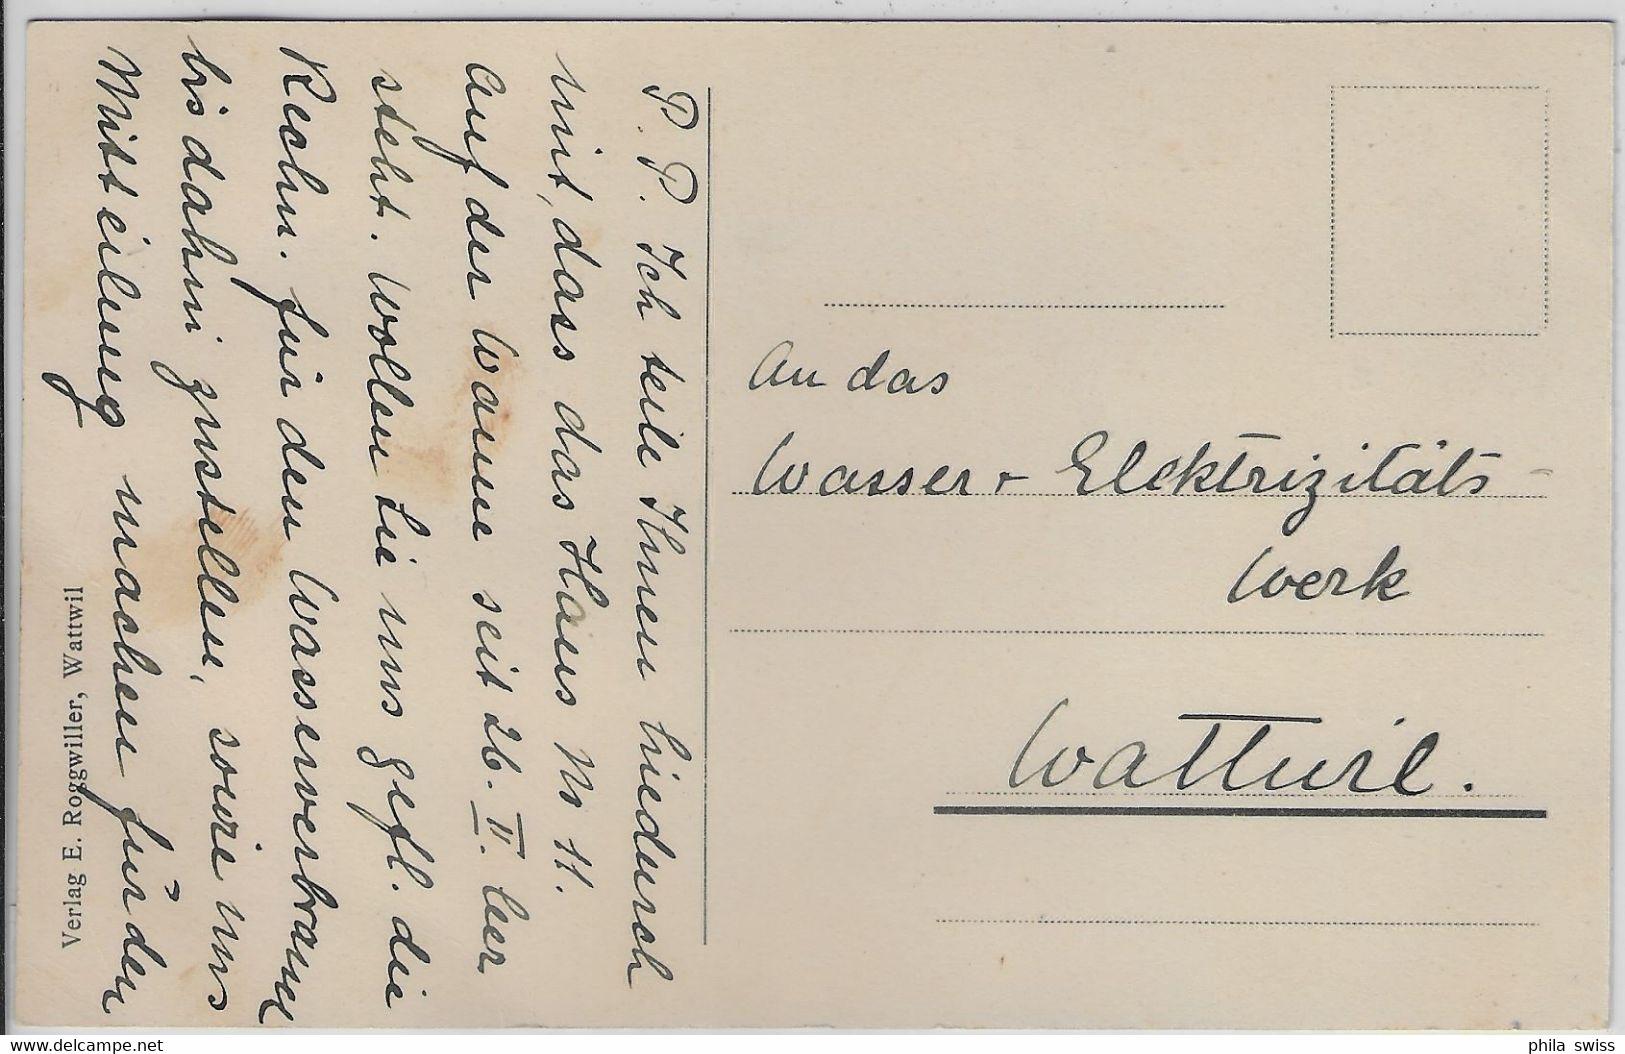 P. P. Ich teile Ihnen hiedurch
mit, dass das Haus No 11.
Auf der Wanne seit 26. II. leer
steht. Wollen Sie uns gefl. die
Rechn. für den Wasserverbrauch
bis dahin zustellen, sowie uns
Mitteilung machen für den
Verlag E. Roggwiller, Wattwil
An das
Wasser- Elektrizitäts-
Werk
Wattwil.
www.delcampe.net
phila swiss